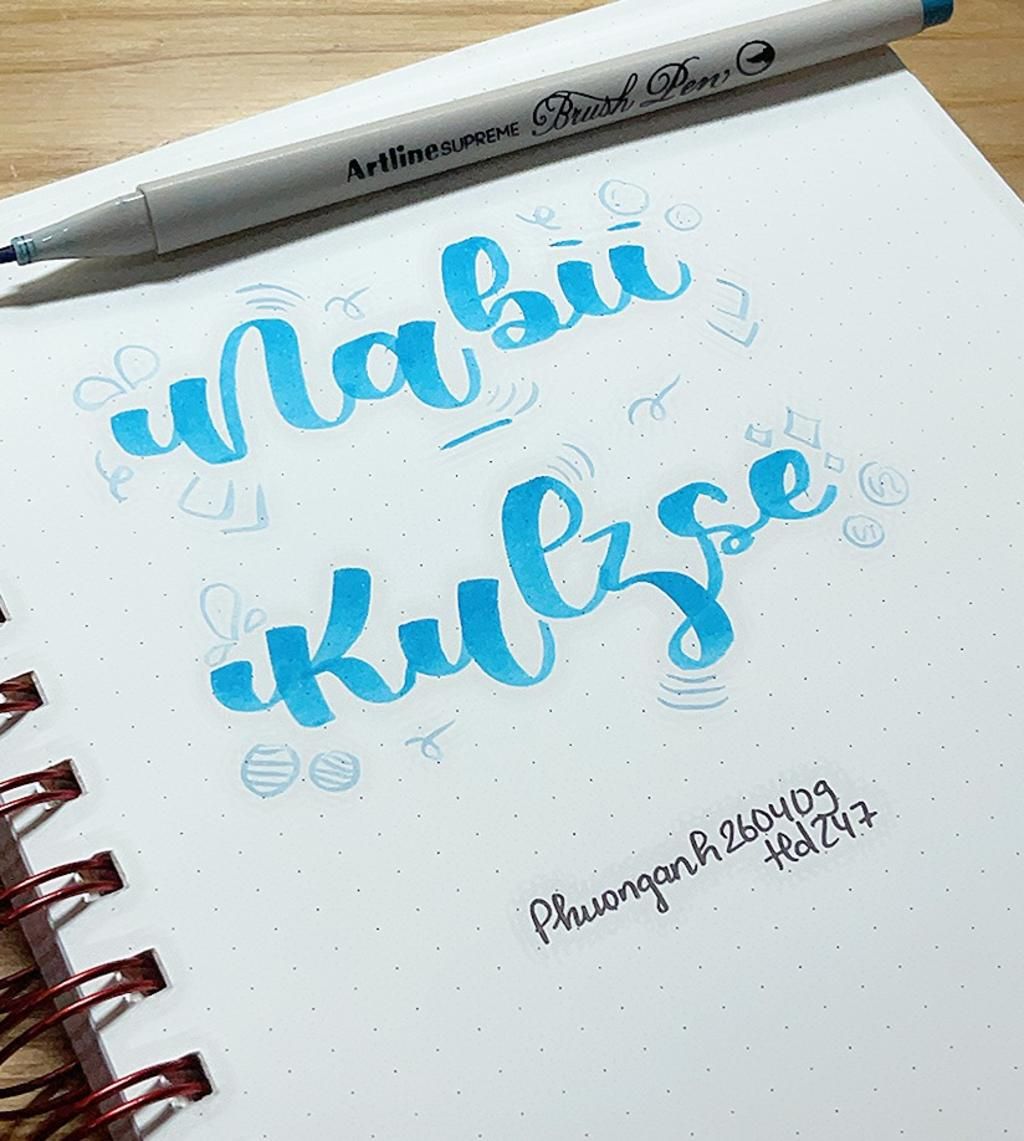 Artline SUPREME Brush Pen
Nabii
Kulzse
Phuonganh260409
Hd247